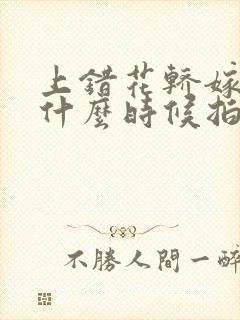 上錯花轎嫁
什麼時候拍
不勝人間一醉